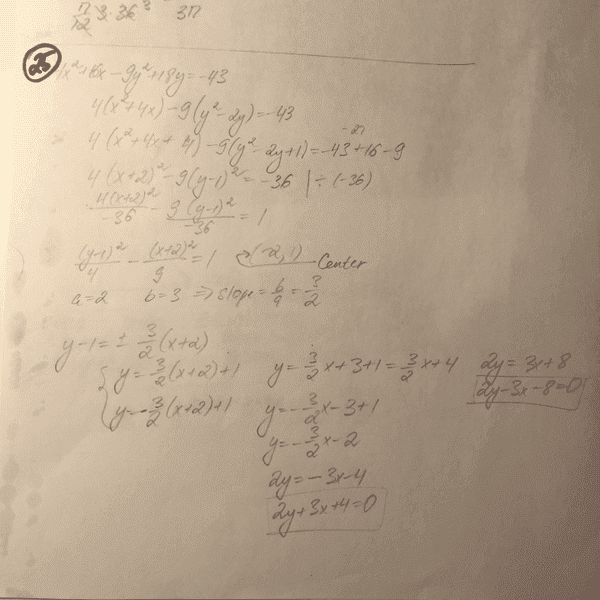 π/12 3·36³ 3π
25
4x²+16x-9y²+18y=-43
4(x²+4x)-9(y²-2y)=-43
-27
4(x²+4x+4)-9(y²-2y+1)=-43+16-9
4(x+2)²-9(y-1)²=-36 |÷(-36)
4(x+2)²/-36 - 9(y-1)²/-36 = 1
(y-1)²/4 - (x+2)²/9 = 1 (-2,1) Center
a=2 b=3 ⇒ slope = b/a = 3/2
y-1=± 3/2(x+2)
{ y=3/2(x+2)+1 y=3/2x+3+1=3/2x+4 2y=3x+8
2y-3x-8=0
y=-3/2(x+2)+1 y=-3/2x-3+1
y=-3/2x-2
2y=-3x-4
2y+3x+4=0